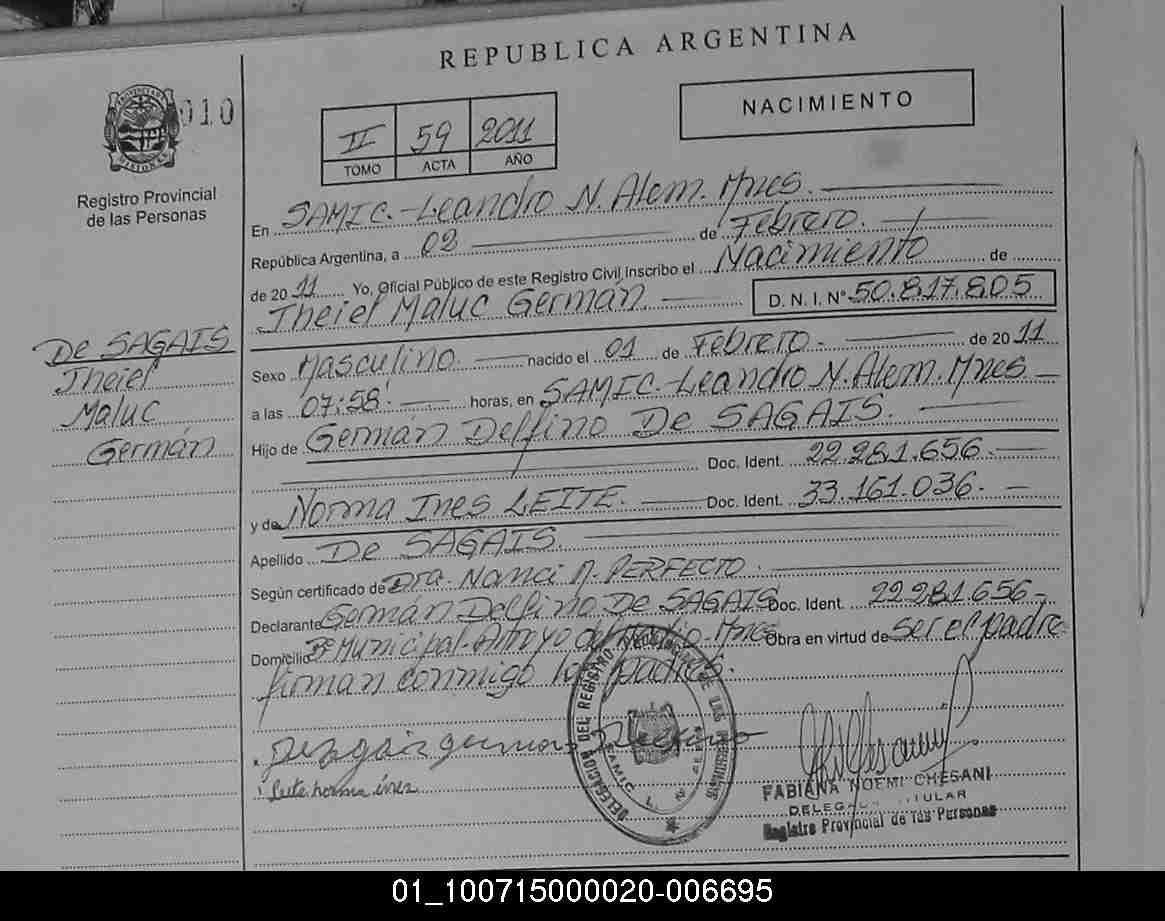 REPUBLICA ARGENTINA
010
PROVINCIA DE MISIONES
Registro Provincial
de las Personas
II 59 2011
TOMO ACTA AÑO
NACIMIENTO
En SAMIC.-Leandro N. Alem. Mnes.
República Argentina, a 02 de Febrero.
de 2011 Yo, Oficial Público de este Registro Civil, inscribo el Nacimiento de
Theiel Maluc Germán D. N. I. Nº 50.817.805
De SAGAIS
Theiel
Maluc
Germán
Sexo Masculino. nacido el 01 de Febrero- de 2011
a las 07:58' horas, en SAMIC.-Leandro N. Alem. Mnes
Hijo de Germán Delfino De SAGAIS.
Doc. Ident. 22.281.656.
y de Norma Ines LEITE. Doc. Ident. 33.161.036.
Apellido De SAGAIS.
Según certificado de Dra. Nanci M. PERFECTO.
Declarante Germán Delfino De SAGAIS Doc. Ident. 22.281.656-
Domicilio Bº Municipal-Arroyo del Medio-Mnes Obra en virtud de ser el padre
firman conmigo los padres.
Leite norma ines
DELEGACION DEL REGISTRO PROVINCIAL DE LAS PERSONAS
SAMIC L. N. ALEM
FABIANA NOEMI CHESANI
TITULAR
Registro Provincial de las Personas
01_100715000020-006695